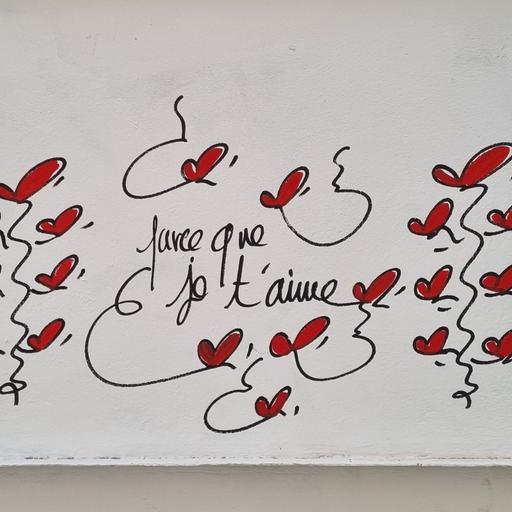 parce que
je t'aime